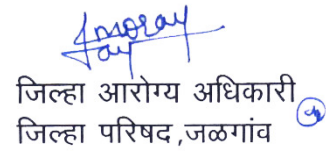 जिल्हा आरोग्य अधिकारी
जिल्हा परिषद ,जळगांव